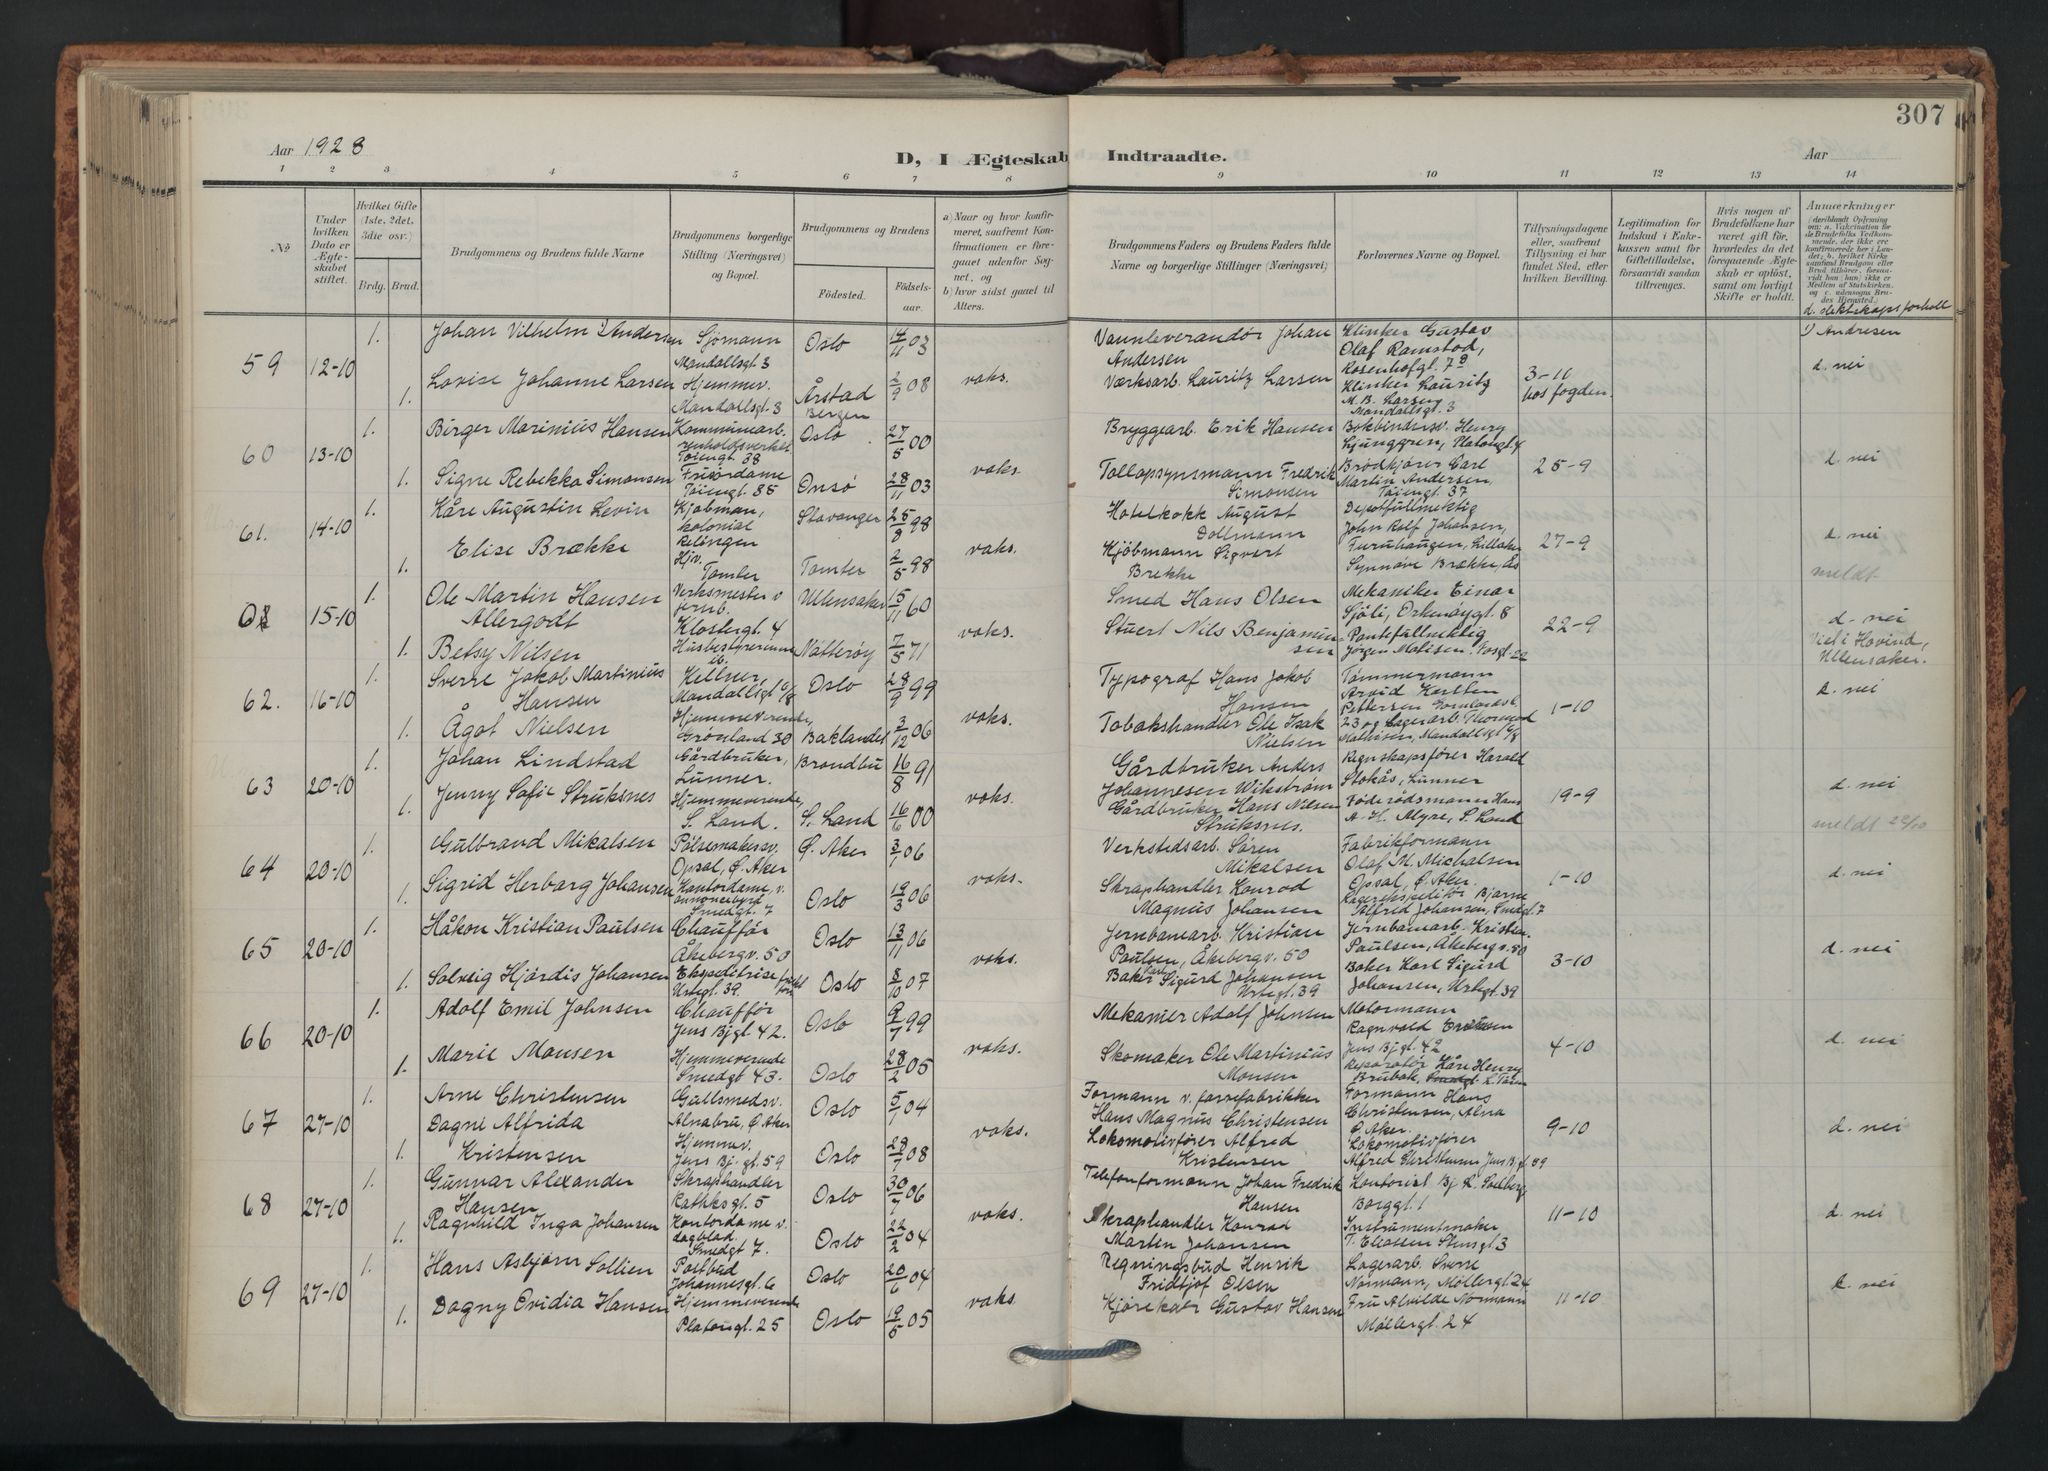 307
Aar 1928
D, I Ægteskab Indtraadte.
Aar
1 2 3 4 5 6 7 8 9 10 11 12 13 14
No
Under hvilken Dato er Ægteskabet stiftet.
Hvilket Gifte (1ste, 2det, 3die osv.)
Brdg. Brud.
Brudgommens og Brudens fulde Navne
Brudgommens borgerlige Stilling (Næringsvei) og Bopæl.
Brudgommens og Brudens
Fødested. Fødselsaar.
a) Naar og hvor konfirmeret, saafremt Konfirmationen er foregaaet udenfor Sognet, og
b) hvor sidst gaaet til Alters.
Brudgommens Faders og Brudens Faders fulde Navne og borgerlige Stillinger (Næringsvei)
Forlovernes Navne og Bopæl.
Tillysningsdagene eller, saafremt Tillysning ei har fundet Sted, efter hvilken Bevilling.
Legitimation for Indskud i Enkekassen samt for Giftetilladelse, forsaavidt saadan tiltrænges.
Hvis nogen af Brudefolkene har været gift før, hvorledes da det foregaaende Ægteskab er opløst, samt om lovligt Skifte er holdt.
Anmærkninger
d. slektskapsforhold
59 12-10 1. Johan Vilhelm 1) Andersen Sjømann Mandallsgt. 3 Oslo 14/11 03 Vannleverandør Johan Andersen Klinker Gustav Olaf Ramstad, Rosenhofgt. 7 B 1) Andresen
1. Lovise Johanne Larsen Hjemmev. Mandallsgt. 3 Årstad Bergen 2/9 08 voks. Værksarb. Lauritz Larsen Klinker Lauritz M. B. Larsen Mandallsgt. 3 3-10 hos fogden. d. nei
60 13-10 1. Birger Marinius Hansen Kommunearb. renholdsverket Tøiengt. 38 Oslo 27/5 00 Bryggearb. Erik Hansen Bokbindersv. Henry Ljunggren, Platousgt. 4
1. Signe Rebekka Simonsen Frisørdame Tøiengt. 38 Onsø 28/11 03 voks. Tollopsynsmann Fredrik Simonsen Brødkjører Carl Martin Andersen, Tøiengt. 37 25-9 d. nei
61. 14-10 1. Kåre Augustin Levin Kjøbman, kolonial Relingen Stavanger 25/8 98 Hotelkokk August Dollmann Depotfullmektig John Rolf Johansen, Furuhaugen, Lilleaker
1. Elise Brække Hjv. Tomter Tomter 2/5 98 voks. Kjøbmann Sigvert Brekke Synnøve Brække, Ås 27-9 d. nei
meldt
15-10 1. Ole Martin Hansen Allergodt Verksmester v jernb. Klostergt. 4 Ullensaker 15/11 60 Smed Hans Olsen Mekaniker Einar Sjøli, Orknøygt. 8
1. Betsy Nilsen Husbestyrerinne ib. Nøtterøy 7/5 71 voks. Stuert Nils Benjaminsen Pantefullmektig Jørgen Matisen, 22-9 d. nei Viet i Hovind, Ullensaker.
62. 16-10 1. Sverre Jakob Martinius Hansen Mandallsgt 6/8 Oslo 28/9 99 Typograf Hans Jakob Hansen Tømmermann Arvid Karlsen Pettersen
1. Ågot Nielsen Hjemmeverende, Grønland 30 Baklandet 3/12 06 voks. Tobakshandler Ole Isak Nielsen 23 og Lagerarb. Thormod Mathisen, Mandallsgt 6/8 1-10 d. nei
63 20-10 1. Johan Lindstad Gårdbruker, Lunner. Brandbu 16/8 91 Gårdbruker Anders Johannesen Wikstrøm Regnskapsfører Harald Stokås, Lunner
1. Jenny Sofie Struksnes Hjemmeverende, S. Land. S. Land 16/6 00 voks. Gårdbruker Hans Nilsen Struksnes. Føderådsmann Hans A. H. Alyre, S. Land 19-9 d. nei
meldt 22/10
64 20-10 1. Gulbrand Mikalsen Pølsemakersv. Opsal, Ø. Aker Ø. Aker 3/1 06 Verkstedsarb. Søren Mikalsen Fabrikformann Olaf M. Michalsen Opsal, Ø. Aker.
1. Sigrid Herborg Johansen Kontordame v. annoncebyrå Smedgt. 7 Oslo 19/3 06 voks. Skraphandler Konrad Magnus Johansen Lagerekspeditør Bjarne Alfred Johansen, Smedgt. 7 1-10 d. nei
65 20-10 1. Håkon Kristian Paulsen Chauffør Åkebergv. 50 Oslo 13/11 06 Jernbanearb. Kristian Paulsen, Åkebergv. 50 Jernbanearb. Kristian. Paulsen, Åkebergv. 50
1. Solveig Hjørdis Johansen Ekspeditrise Urtegt. 39. Oslo 8/10 07 voks. Baker Karl Sigurd Johansen Urtegt. 39 Baker Karl Sigurd Johansen, Urtegt. 39 3-10 d. nei
66 20-10 1. Adolf Emil Johnsen Chauffør Jens Bj.gt 42. Oslo 9/7 99 Mekaniker Adolf Johnsen Motormann Ragnvald Eriksen Jens Bj.gt. 42
1. Marie Monsen Hjemmeverende Smedgt 43. Oslo 28/2 05 voks. Skomaker Ole Martinius Monsen Reparatør Kåre Henry Brubak, 4-10 d. nei
67 27-10 1. Arne Christensen Gullsmedsv. Alnabru, Ø. Aker Oslo 5/1 04 Formann v. farvefabrikker Hans Magnus Christensen Formann Hans Christensen, Alna Ø. Aker.
1. Dagne Alfrida Kristensen Hjemmev. Jens Bj. gt. 59 Oslo 28/7 08 voks. Lokomotivfører Alfred Kristensen Lokomotivfører Alfred Christensen Jens Bj.gt. 59 9-10 d. nei
68 27-10 1. Gunnar Alexander Hansen Skraphandler Rathkesgt. 5 Oslo 30/7 06 Telefonformann Johan Fredrik Hansen Kontorist Bj. R. Solberg Borggt. 1
1. Ragnhild Inga Johansen Kontordame v. dagblad. Smedgt 7. Oslo 22/2 04 voks. Skraphandler Konrad Marten Johansen Instrumentmaker T. Eliassen Stensgt. 3 11-10 d. nei
69 27-10 1. Hans Asbjørn Sollien Postbud Johannesgt. 6 Oslo 20/6 04 Regningsbud Henrik Fridtjof Olsen Lagerarb. Sverre Normann, Møllergt. 24
1. Dagny Ovidia Hansen Hjemmeverende Platousgt. 25 Oslo 19/5 05 voks. Kjørekar Gustav Hansen Fru Alvilde Normann Møllergt. 24 11-10 d. nei